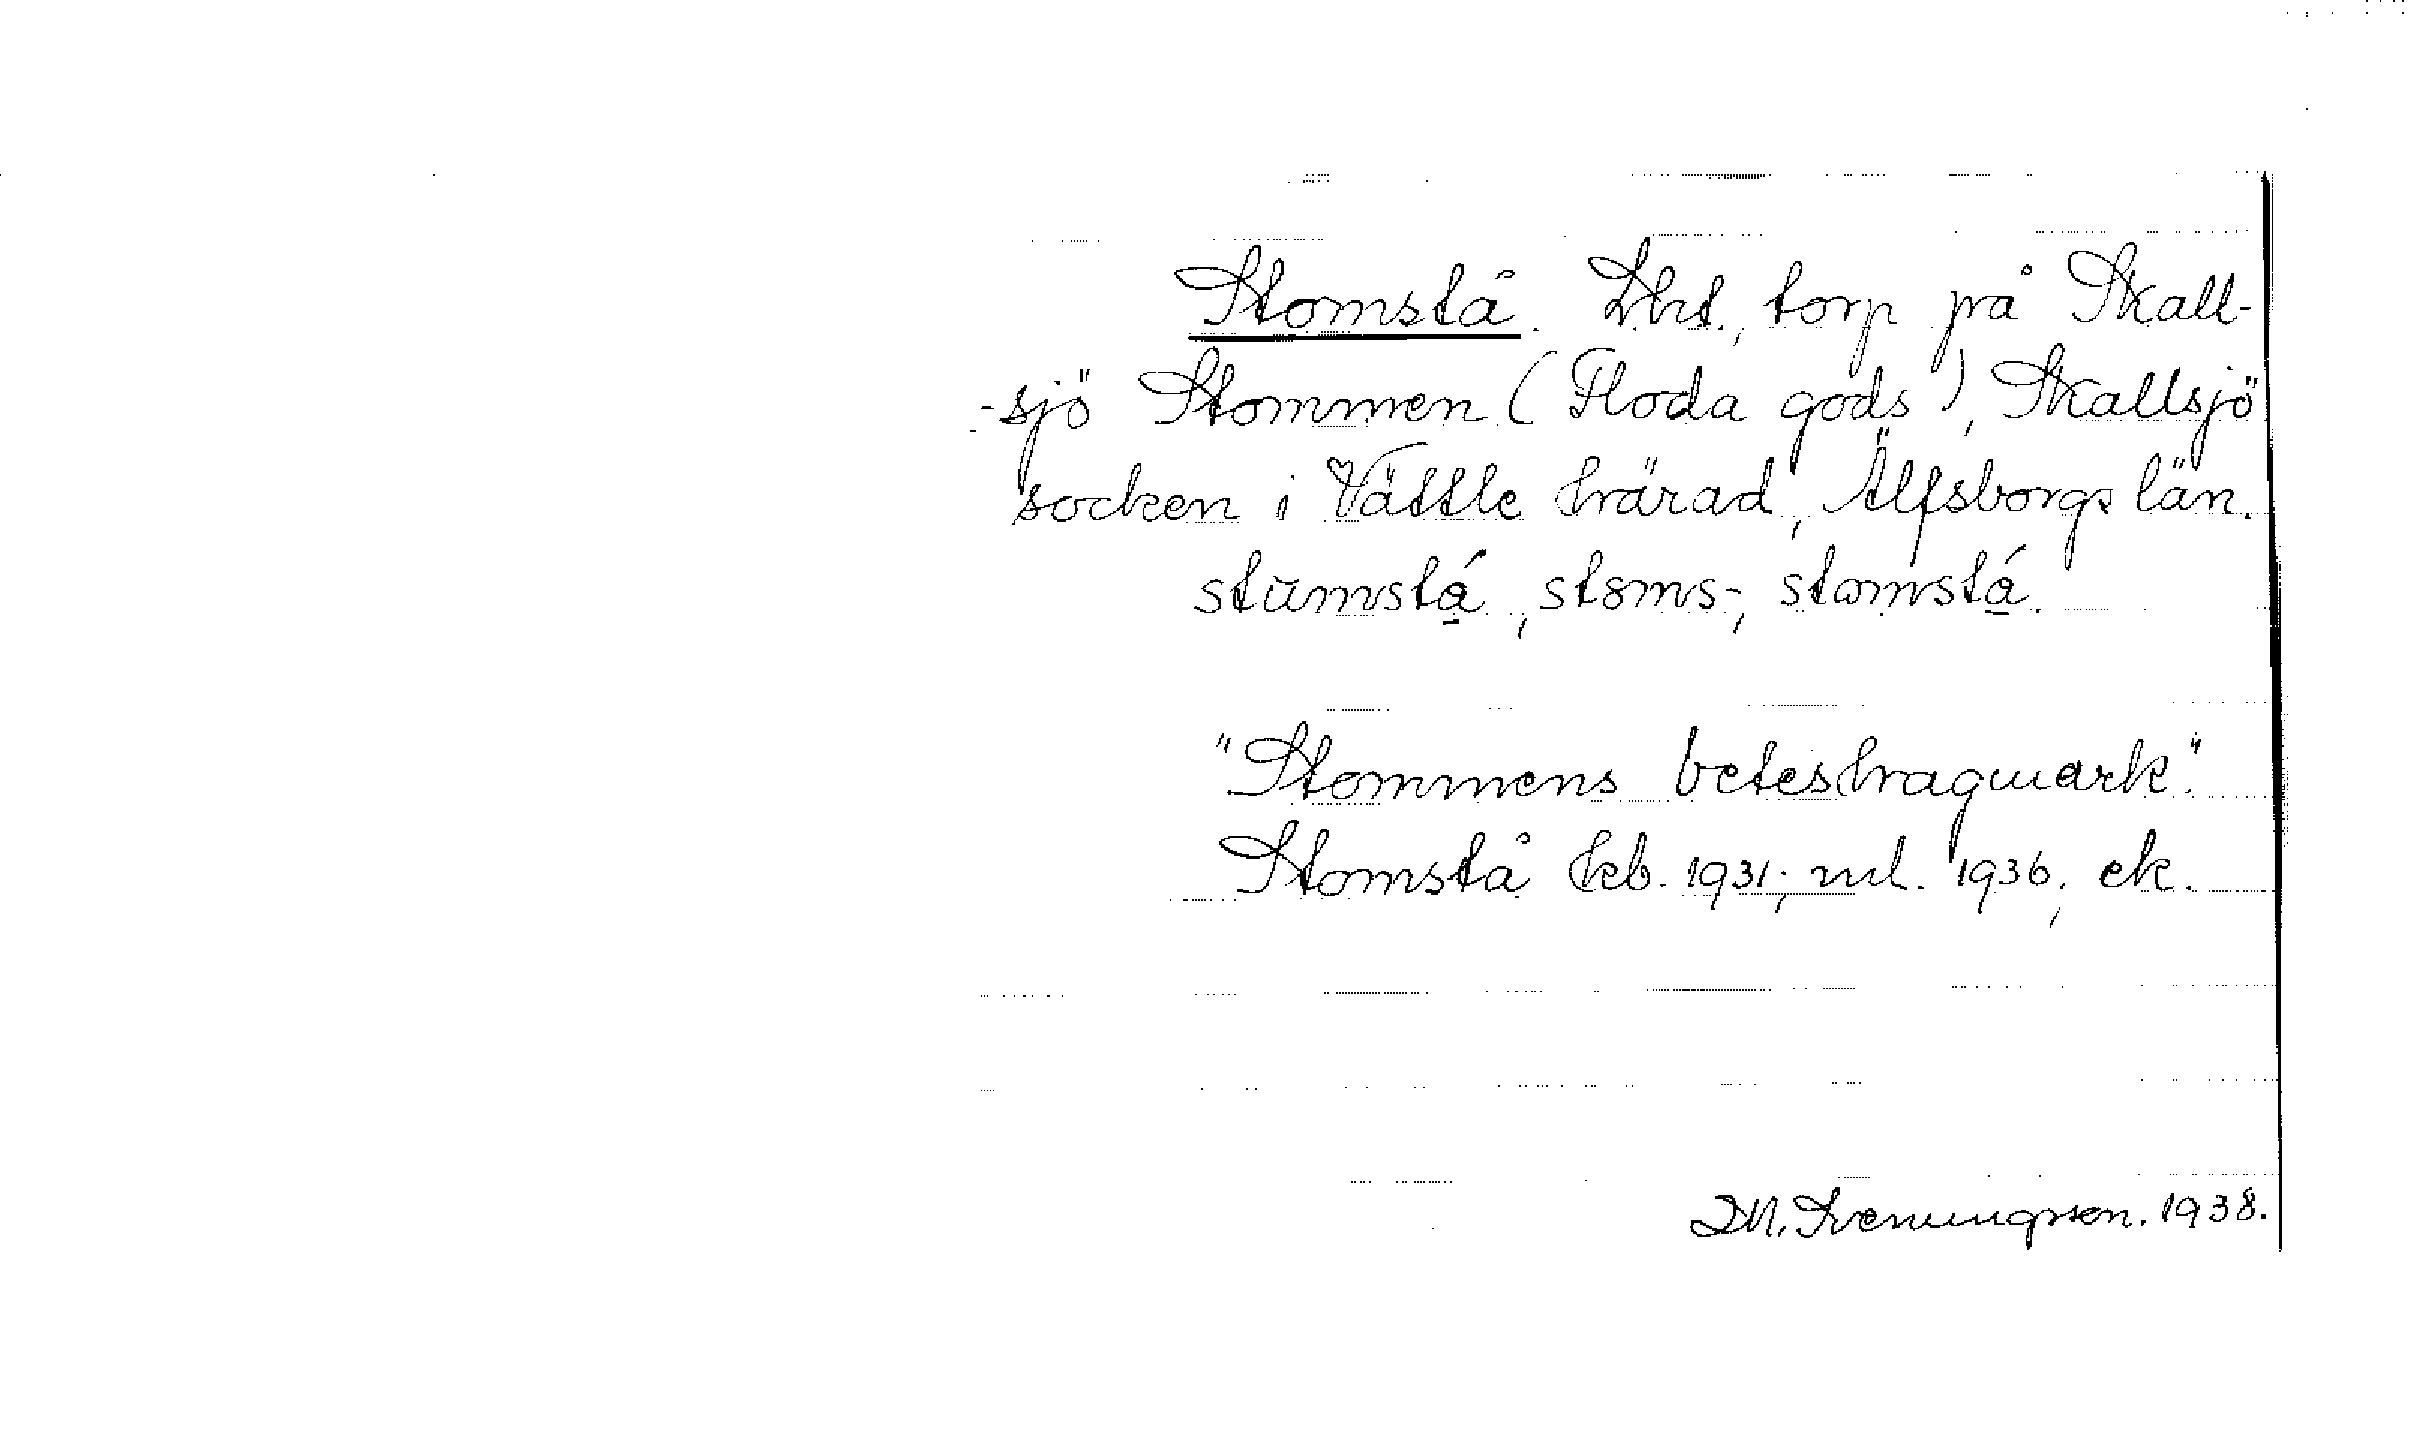 Stomstå. Lht., torp på Skall-
-sjö Stommen (Floda gods), Skallsjö
socken i Vättle härad, Älfsborgs län.
stumstá̱, stoms-, stomstá̱.
"Stommens beteshagmark".
Stomstå hkb. 1931; ml. 1936; ek.
D.M. Svenungsson. 1938.